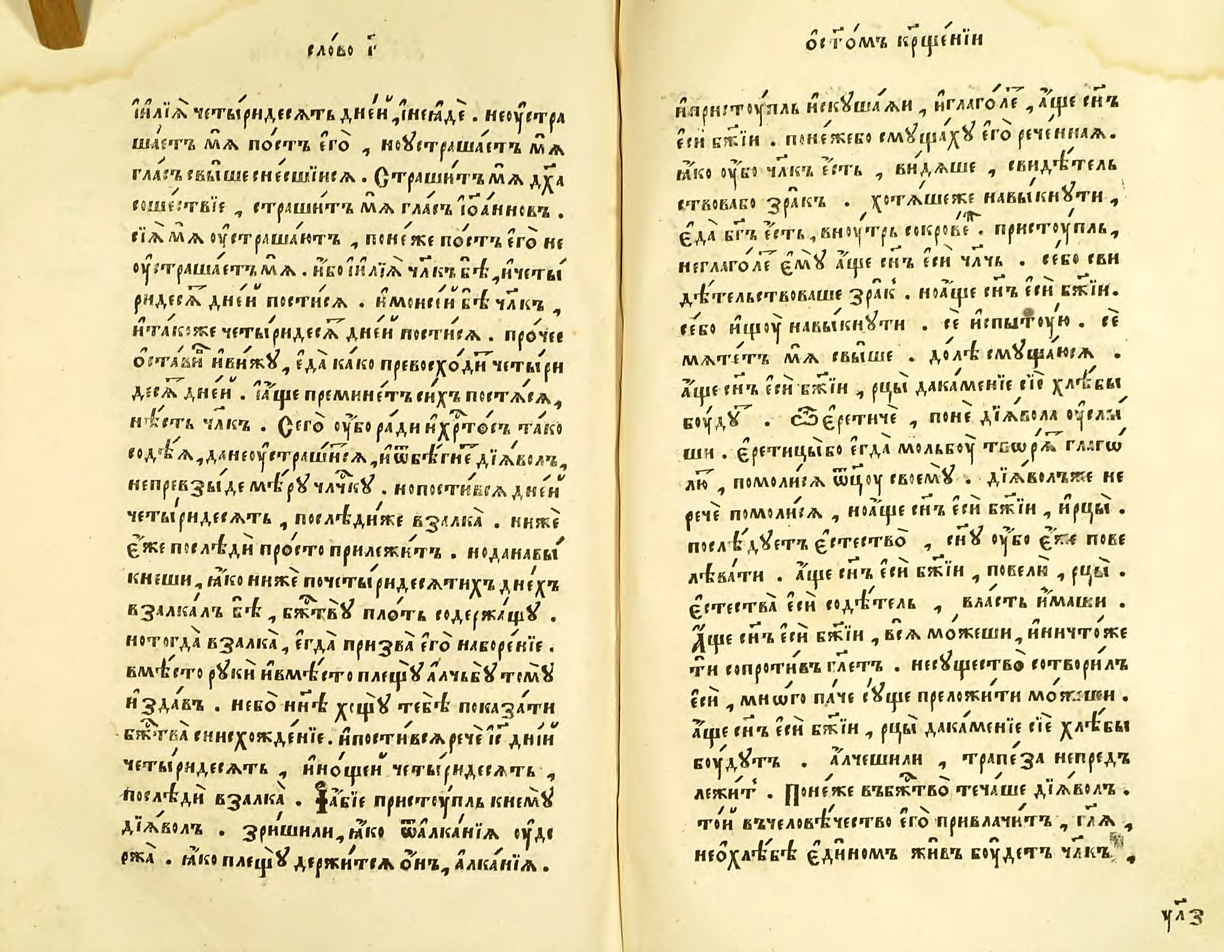 сло́во г҃і
и҆илїѧ̀ четы́ридесѧть дне́й , и҆неꙗ҆дѐ . неоу҆стра
ша́етъ мѧ̀ по́стъ є҆го̀ , ноу҆страша́етъ мѧ̀
гла́съ свы́ше сне́сшїисѧ . Страши́тъ мѧ̀ дх҃а
соше́ствїе , страши́тъ мѧ̀ гла́съ і҆ѡа́нновъ .
сїѧ̀ мѧ̀ оу҆страша́ютъ , поне́же по́стъ є҆го̀ не
оу҆страша́етъ мѧ̀ . и҆бо и҆илїѧ̀ чл҃къ бѣ̀ , и҆четы́
ридесѧⷮ дне́й пости́сѧ . и҆моисе́й бѣ̀ чл҃къ ,
и҆та́коже четы́ридесѧⷮ дне́й пости́сѧ . про́чее
ѡ҆ста́виⷨ и҆ви́жу , є҆да̀ ка́ко превосхо́диⷮ четы́ри
десѧⷮ дне́й . а҆́ще преми́нетъ си́хъ постѧ́сѧ ,
нѣ́сть чл҃къ . Сего̀ оу҆́бо ра́ди и҆хрⷭ҇то́съ та́ко
содѣ́ѧ , данеоу҆страши́сѧ , и҆ѿбѣ́гнеⷮ дїѧ́волъ ,
непревзы́де мѣ́ру члч҃ку . нопости́всѧ дне́й
четы́ридесѧть , послѣди́же взалка̀ . нижѐ
є҆́же послѣдѝ про́сто прилежи́тъ . ноданавы́
кнеши , ꙗ҆́ко нижѐ почеты́ридесѧтихъ дне́хъ
взалка́лъ бѣ̀ , бжⷭ҇тву̀ пло́ть содержа́щу .
нотогда̀ взалка̀ , є҆гда̀ призва̀ є҆го̀ наборе́нїе .
вмѣ́сто рукѝ и҆вмѣ́сто плещу̀ а҆лчьбу̀ тому̀
и҆зда́въ . небо̀ нн҃ѣ хощу̀ тебѣ̀ показа́ти
бжⷭ҇тва̀ снисхожде́нїе . и҆пости́всѧ речѐ і҆с҃ дні́й
четы́ридесѧть , и҆ноще́й четы́ридесѧть ,
послѣдѝ взалка̀ . И҆а҆́бїе пристоу́пль кнему̀
дїѧ́волъ . зри́шили , ꙗ҆́ко ѿа҆лка́нїѧ оу҆де
ржа̀ . ꙗ҆́ко плещу̀ держи́тсѧ ѻ҆́нъ , а҆лка́нїѧ .
ѡ҆ст҃о́мъ крⷳ҇ще́нїи
и҆пристоу́пль и҆скуша́ѧи , и҆глаго́леⷮ , а҆́ще сн҃ъ
є҆сѝ бж҃їи . поне́жебо смуща́ху є҆го̀ рече́ннаѧ .
ꙗ҆́ко оу҆́бо чл҃къ є҆́сть , ви́дѧше , свидѣ́тель
ствовабо зра́къ . хотѧ́шеже навы́кнути ,
є҆да̀ бг҃ъ є҆́сть , вноу́трь сокрове́ⷩ . пристоу́пль ,
неглаго́леⷮ є҆му̀ а҆́ще сн҃ъ є҆сѝ чл҃чь . се́бо сви
дѣ́тельствоваше зра́к . ноа҆́ще сн҃ъ є҆сѝ бж҃їи .
се́бо и҆щоу̀ навы́кнути . сѐ и҆спы́тоую . сѐ
мѧте́тъ мѧ̀ свы́ше . до́лѣ смуща́юсѧ .
а҆́ще сн҃ъ є҆сѝ бж҃їи , рцы̀ дака́менїе сїѐ хлѣ́бы
боу́дуⷮ . Ѽ є҆ретичѐ , понѐ дїѧ́вола оу҆слы́
ши . є҆ретицы́бо є҆гда̀ мольбоу̀ творѧ́ⷮ глагѡ́
лю , помоли́сѧ ѿц҃оу своему̀ . дїѧ́волъже не
речѐ помоли́сѧ , ноа҆́ще сн҃ъ є҆сѝ бж҃їи , и҆рцы̀ .
послѣ́дуетъ є҆стество̀ , сн҃у оу҆́бо є҆́же пове
лѣва́ти . а҆́ще сн҃ъ є҆сѝ бж҃їи , повелю̀ , рцы̀ .
є҆стества̀ є҆сѝ содѣ́тель , вла́сть и҆́маши .
А҆́ще сн҃ъ є҆сѝ бж҃їи , всѧ̀ мо́жеши , и҆ничто́же
ти сопроти́въ гл҃етъ . несущество̀ сотвори́лъ
є҆сѝ , мнѡ́го па́че су́ще преложи́ти мо́жеши .
а҆́ще сн҃ъ є҆сѝ бж҃їи , рцы̀ дака́менїе сїѐ хлѣ́бы
боу́дутъ . а҆́лчешили , трапе́за непредъ
лежи́т . Поне́же въбжⷭ҇тво̀ теча́ше дїѧ́волъ .
то́й въчеловѣ́чество є҆го̀ привлачи́тъ , гл҃ѧ ,
неѡ҆хлѣ́бѣ є҆ди́номъ жи́въ боу́детъ чл҃къ ,
ул҃з